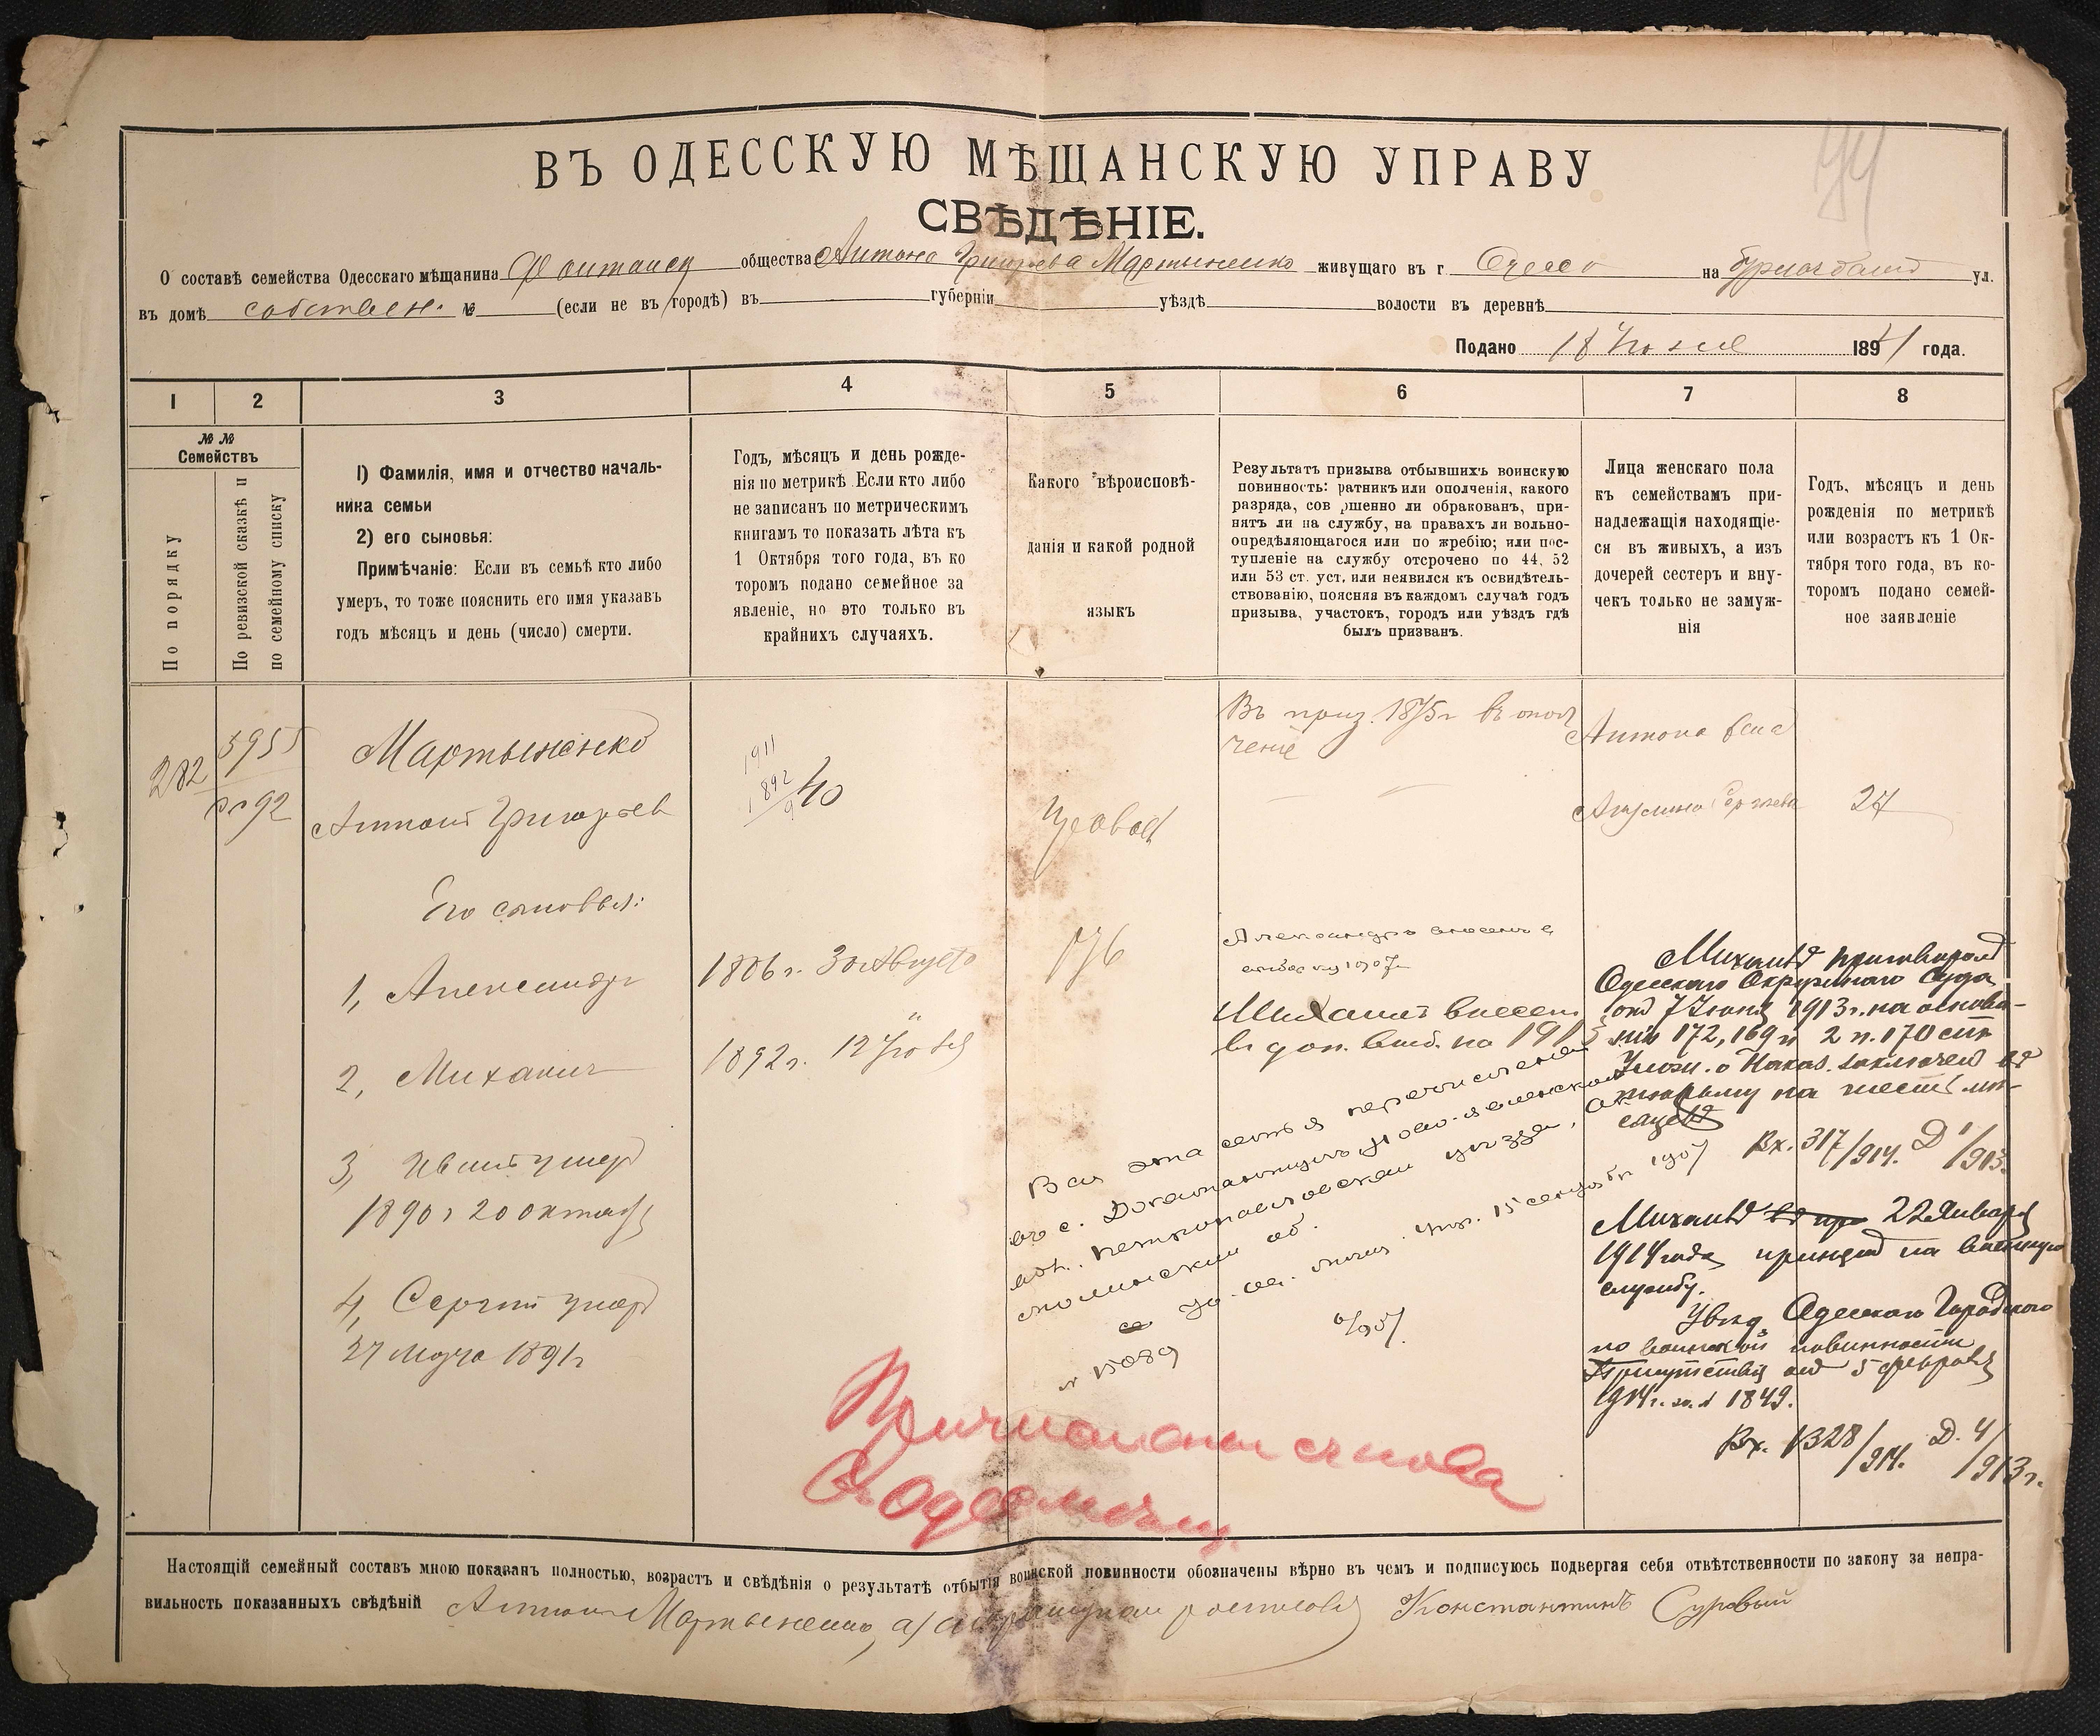 74
ВЪ ОДЕССКУЮ МѢЩАНСКУЮ УПРАВУ
СВѢДѢНІЕ.
О составѣ семейства Одесскаго мѣщанина общества Антона Григорьева Мартыненко живущаго въ г. Одессѣ на ул.
въ домѣ собствен. № (если не въ городѣ) въ губерніи уѣздѣ волости въ деревнѣ
Подано 18 1891 года.
1 2 3 4 5 6 7 8
№ №
Семействъ
По порядку
По ревизской сказкѣ и
по семейному списку
1) Фамилія, имя и отчество началь-
ника семьи
2) его сыновья:
Примѣчаніе: Если въ семьѣ кто либо
умеръ, то тоже пояснить его имя указавъ
годъ мѣсяцъ и день (число) смерти.
Годъ, мѣсяцъ и день рожде-
нія по метрикѣ. Если кто либо
не записанъ по метрическимъ
книгамъ то показать лѣта къ
1 Октября того года, въ ко
торомъ подано семейное за
явленіе, но это только въ
крайнихъ случаяхъ.
Какого вѣроисповѣ-
данія и какой родной
языкъ
Результатъ призыва отбывшихъ воинскую
повинность: ратникъ или ополченія, какого
разряда, сов ршенно ли обракованъ, при-
нятъ ли на службу, на правахъ ли вольно-
опредѣляющагося или по жребію; или пос-
тупленіе на службу отсрочено по 44, 52
или 53 ст. уст. или неявился къ освидѣтель-
ствованію, поясняя въ каждомъ случаѣ годъ
призыва, участокъ, городъ или уѣздъ гдѣ
былъ призванъ.
Лица женскаго пола
къ семействамъ при-
надлежащія находящіе-
ся въ живыхъ, а изъ
дочерей сестеръ и вну-
чекъ только не замуж-
нія
Годъ, мѣсяцъ и день
рожденія по метрикѣ
или возрастъ къ 1 Ок-
тября того года, въ ко-
торомъ подано семей-
ное заявленіе
282
3955
92
Мартыненко
Антонъ Григорьев
1911
1892
9
40
Въ приз. 1875 г. въ опол
ченіе
Антона жена
27
Его сыновья:
1, Александръ
1886 г. 30 Августа
Александръ внесенъ в
1907 г.
2, Михаилъ
1892 г. 12
Михаилъ внесенъ
въ доп. на 1913
3, Иванъ умеръ
1890 г 20 октября
4, Сергѣй умеръ
27 марта 1891 г
Вся эта семья перечислена
въ с.
уѣзда,
15 сентября 1907
№ 15089
Михаилъ приговоромъ
Одесскаго Окружнаго Суда
отъ 7 Іюня 1913 г. на основа-
ніи 172, 169 и 2 п. 170 ст.
Улож. о Наказ. заключенъ въ
тюрьму на шесть мѣ-
сяцевъ
Вх. 317/914. Д 1/913.
Михаилъ въ пр 22 Января
1914 года принятъ на военную
службу.
Увѣд. Одесскаго Городского
по воинской повинности
Присутствія отъ 5 февраля
1914 г. за № 1849.
Вх. 1328/914. Д. 4/913 г.
Причислены снова
Настоящій семейный составъ мною показанъ полностью, возрастъ и свѣдѣнія о результатѣ отбытія воинской повинности обозначены вѣрно въ чемъ и подписуюсь подвергая себя отвѣтственности по закону за непра-
вильность показанныхъ свѣдѣній Антонъ Мартыненко, а Константинъ Суровый